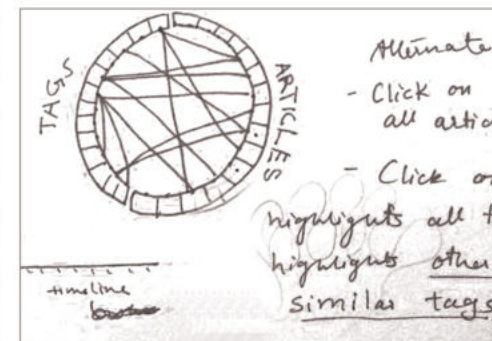 TAGS
ARTICLES
- Click on
all
- Click
highlights all
highlights other
similar tags
timeline